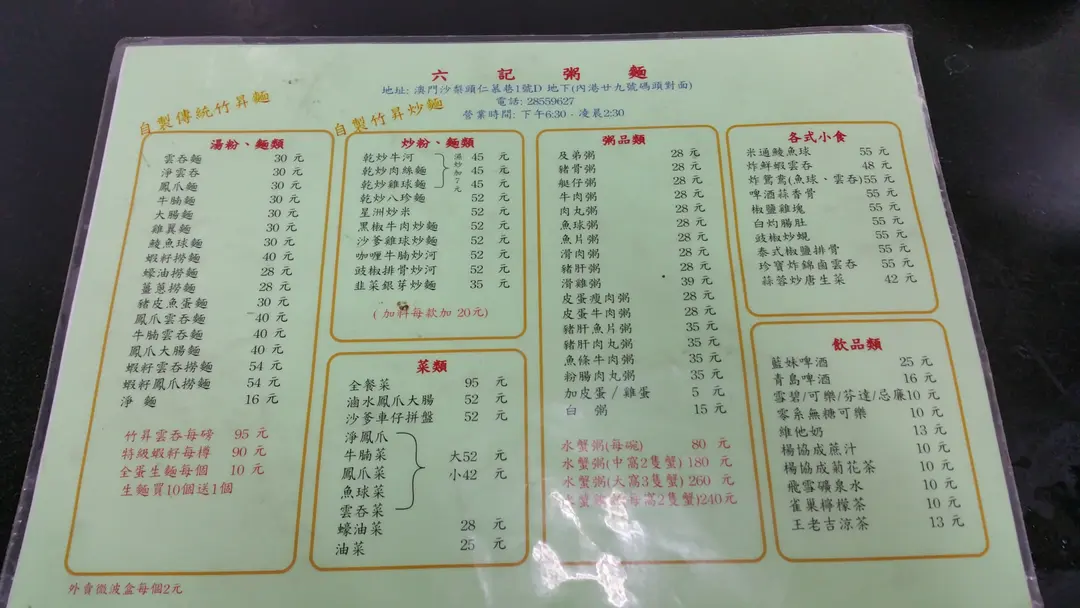 六記粥麵
地址: 澳門沙梨頭仁慕巷1號D 地下(內港廿九號碼頭對面)
電話: 28559627
營業時間: 下午6:30 - 凌晨2:30
自製傳統竹昇麵
湯粉、麵類
雲吞麵 30 元
淨雲吞 30 元
鳳爪麵 30 元
牛腩麵 30 元
大腸麵 30 元
雞翼麵 30 元
鯪魚球麵 30 元
蝦籽撈麵 40 元
蠔油撈麵 28 元
薑蔥撈麵 28 元
豬皮魚蛋麵 30 元
鳳爪雲吞麵 40 元
牛腩雲吞麵 40 元
鳳爪大腸麵 40 元
蝦籽雲吞撈麵 54 元
蝦籽鳳爪撈麵 54 元
淨 麵 16 元
竹昇雲吞每磅 95 元
特級蝦籽每樽 90 元
全蛋生麵每個 10 元
生麵買10個送1個
自製竹昇炒麵
炒粉、麵類
乾炒牛河 45 元
乾炒肉絲麵 45 元
乾炒雞球麵 45 元
濕炒加7元
乾炒八珍麵 52 元
星洲炒米 52 元
黑椒牛肉炒麵 52 元
沙爹雞球炒麵 52 元
咖喱牛腩炒河 52 元
豉椒排骨炒河 52 元
韭菜銀芽炒麵 35 元
( 加料每款加 20元)
菜類
全餐菜 95 元
滷水鳳爪大腸 52 元
沙爹車仔拼盤 52 元
淨鳳爪
牛腩菜 大52 元
鳳爪菜 小42 元
魚球菜
雲吞菜
蠔油菜 28 元
油菜 25 元
粥品類
及弟粥 28 元
豬骨粥 28 元
艇仔粥 28 元
牛肉粥 28 元
肉丸粥 28 元
魚球粥 28 元
魚片粥 28 元
滑肉粥 28 元
豬肝粥 28 元
滑雞粥 39 元
皮蛋瘦肉粥 28 元
皮蛋牛肉粥 28 元
豬肝魚片粥 35 元
豬肝肉丸粥 35 元
魚條牛肉粥 35 元
粉腸肉丸粥 35 元
加皮蛋/雞蛋 5 元
白 粥 15 元
水蟹粥(每碗) 80 元
水蟹粥(中窩2隻蟹) 180 元
水蟹粥(大窩3隻蟹) 260 元
每窩2隻蟹)240元
各式小食
米通鯪魚球 55 元
炸鮮蝦雲吞 48 元
炸鴛鴦(魚球、雲吞)55 元
啤酒蒜香骨 55 元
椒鹽雞塊 55 元
白灼腸肚 55 元
豉椒炒蜆 55 元
泰式椒鹽排骨 55 元
珍寶炸錦鹵雲吞 55 元
蒜蓉炒唐生菜 42 元
飲品類
藍妹啤酒 25 元
青島啤酒 16 元
雪碧/可樂/芬達/忌廉10 元
零系無糖可樂 10 元
維他奶 13 元
楊協成蔗汁 10 元
楊協成菊花茶 10 元
飛雪礦泉水 10 元
雀巢檸檬茶 10 元
王老吉涼茶 13 元
外賣微波盒每個2元